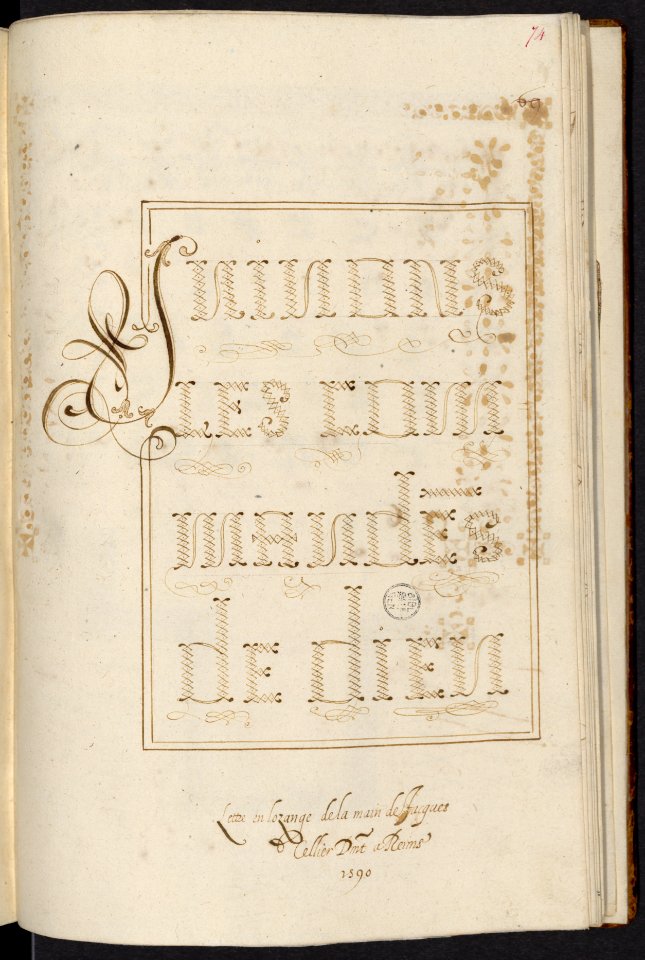 74
69
Suiuons
les com
mandēs
de dieu
Lettre en lozange de la main de Jacques
Cellier Dm̃t a Reims
1590